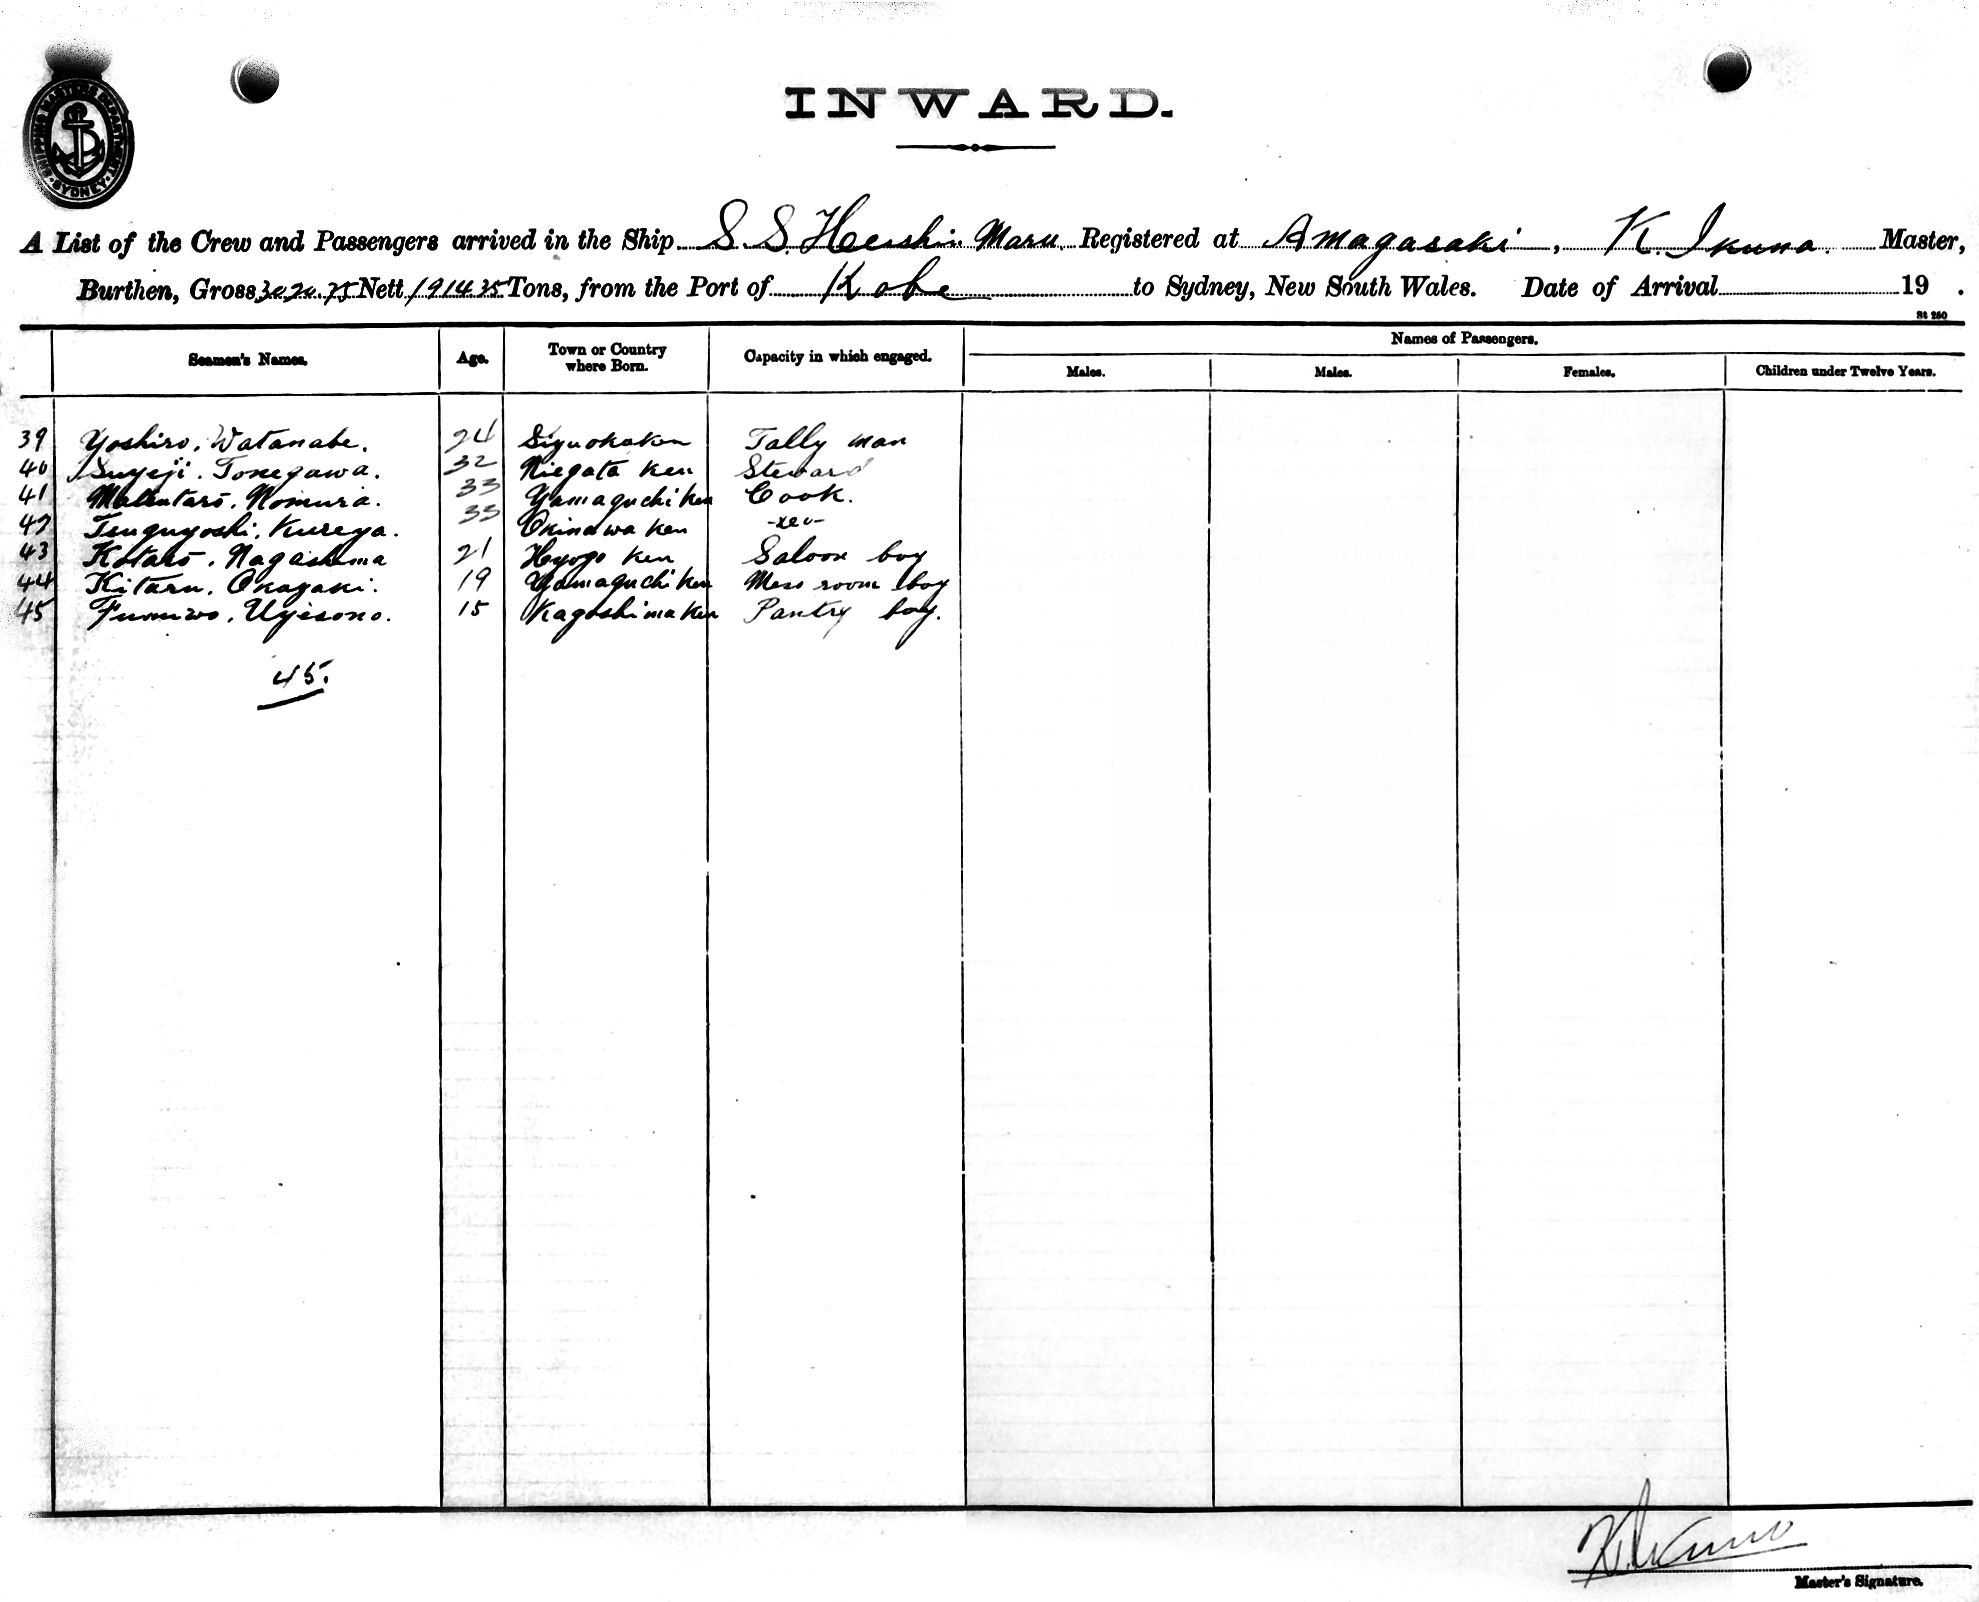 SHIPPING MASTERS DEPARTMENT SYDNEY
INWARD.
A List of the Crew and Passengers arrived in the Ship S.S. Heishin Maru Registered at Amagasaki, K. Ikuma. Master,
Burthen, Gross 3020.75 Nett 1914.35 Tons, from the Port of Kobe to Sydney, New South Wales. Date of Arrival 19 .
St 250
Seamen's Names. Age. Town or Country where Born. Capacity in which engaged. Names of Passengers.
Males. Males. Females. Children under Twelve Years.
39 Yoshiro. Watanabe. 24 Siguokaken Tally man
40 Suyeji. Tonegawa. 32 Niegata ken Steward
41 Nomura. 33 Yamaguchi ken Cook.
42 Tsuguyoshi. Kureya. 33 Okinawa ken
43 Kotaro. Nagashima 21 Hyogo ken Saloon boy
44 Kitaru. Okayaki. 19 Yamaguchi ken Mess room boy
45 Fumiwo. Uyesono. 15 Kagoshima ken Pantry boy.
45.
K. Ikuma
Master's Signature.